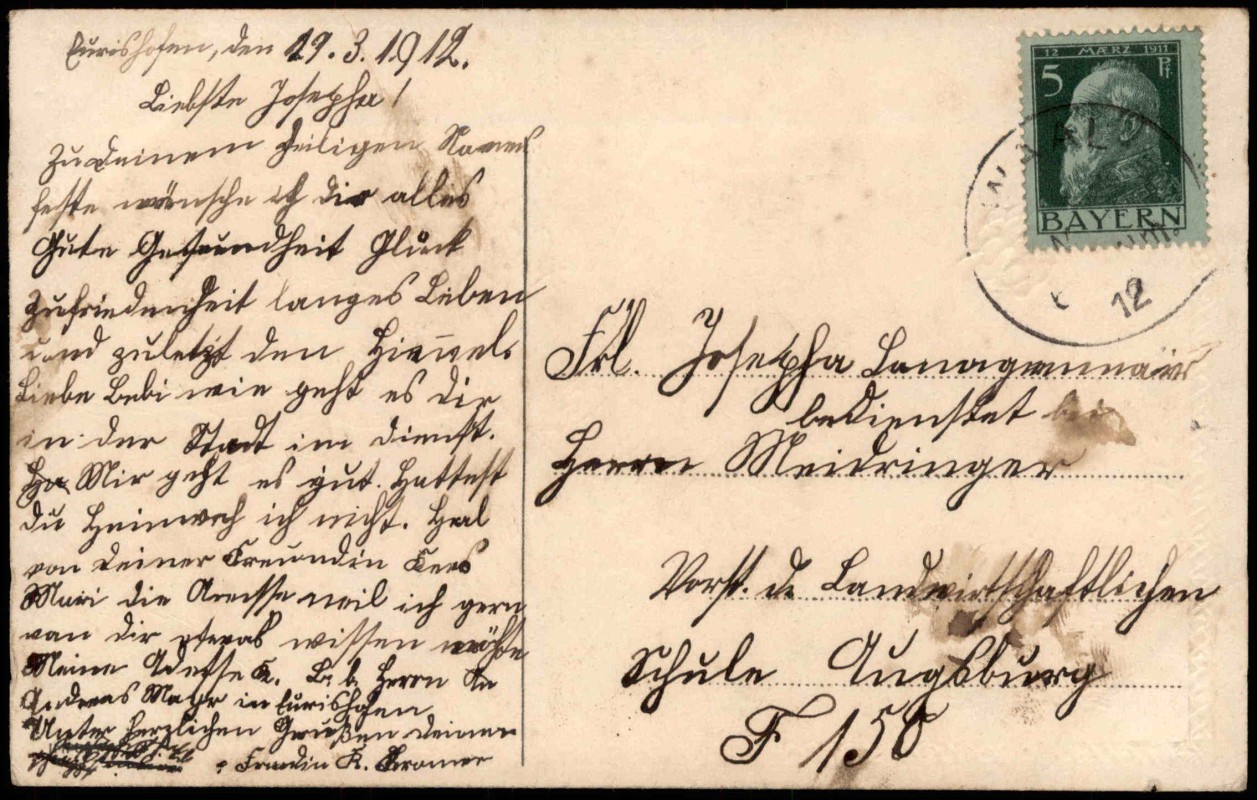 Eurishofen, den 19.3.1912.
Liebste Josepha!
Zu Deinem heiligen Namens
feste wünsche ich dir alles
Gute Gesundheit Glück
Zufriedenheit langes Leben
und zuletzt den Himmel.
Liebe Bebi wie geht es dir
in der Stadt im Dienst.
Mir geht es gut. Hattest
du Heimweh ich nicht.
von deiner Freundin
Mari die weil ich gern
von dir etwas wissen möchte
Meine K. B. b. Herrn
Andreas Mayr in Eurishofen
Unter herzlichen Grüßen deiner
K. Kramer
12 MÆRZ 1911
5 Pf
BAYERN
WAAL
12
Frl. Josepha
bedienstet bei
Herrn Meidringer
Vorst. d. Landwirtschaftlichen
Schule Augsburg
F 150